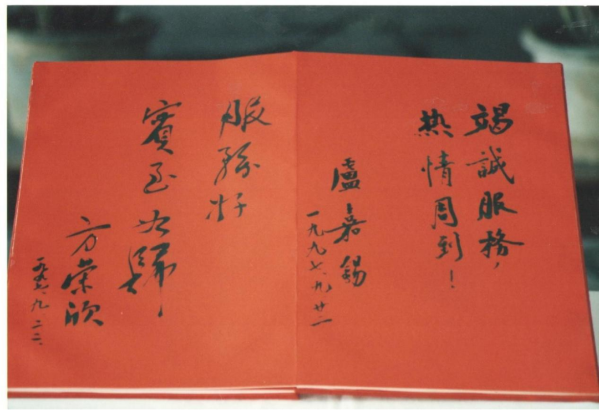 竭誠服務，
热情周到！
盧嘉錫
一九九七.九.廿二
服務好
賓至如歸
方榮欣
一九九七.九.二二.